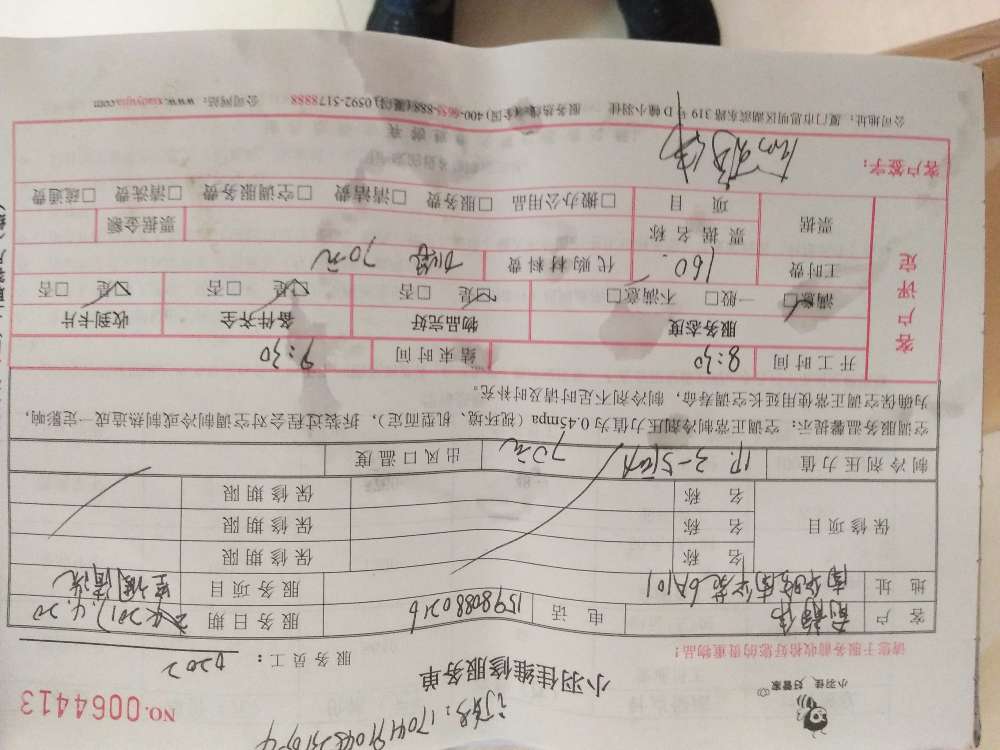 NO.0064413
小羽佳 好管家
小羽佳维修服务单
请您于服务前收拾好您的贵重物品！
服务员工：0202
客户 电话 15980880216 服务日期 2017.4.20
地址 服务项目 空调清洗
保修项目 名称 保修期限
名称 保修期限
名称 保修期限
制冷剂压力值 70元 出风口温度
空调服务温馨提示：空调正常制冷剂压力值为0.45mpa（视环境、机型而定），拆装过程会对空调制冷或制热造成一定影响，
为确保空调正常使用延长空调寿命，制冷剂不足时请及时补充。
客户评定
开工时间 8:30 结束时间 9:30
服务态度 物品完好 备件齐全 收到卡片
满意□ 一般□ 不满意□ □是 □否 □是 □否 □是 □否
工时费 160. 代购材料费 70元
票据 票据名称 票据金额
项目 □搬办公用品 □服务费 □清洁费 □空调服务费 □清洗费 □疏通费
客户签字：
公司地址：厦门市思明区湖滨东路319号D幢小羽佳 服务热线：(全国)400-8655-888 (厦门)0592-5178888 公司网站：www.xiaoyujia.com